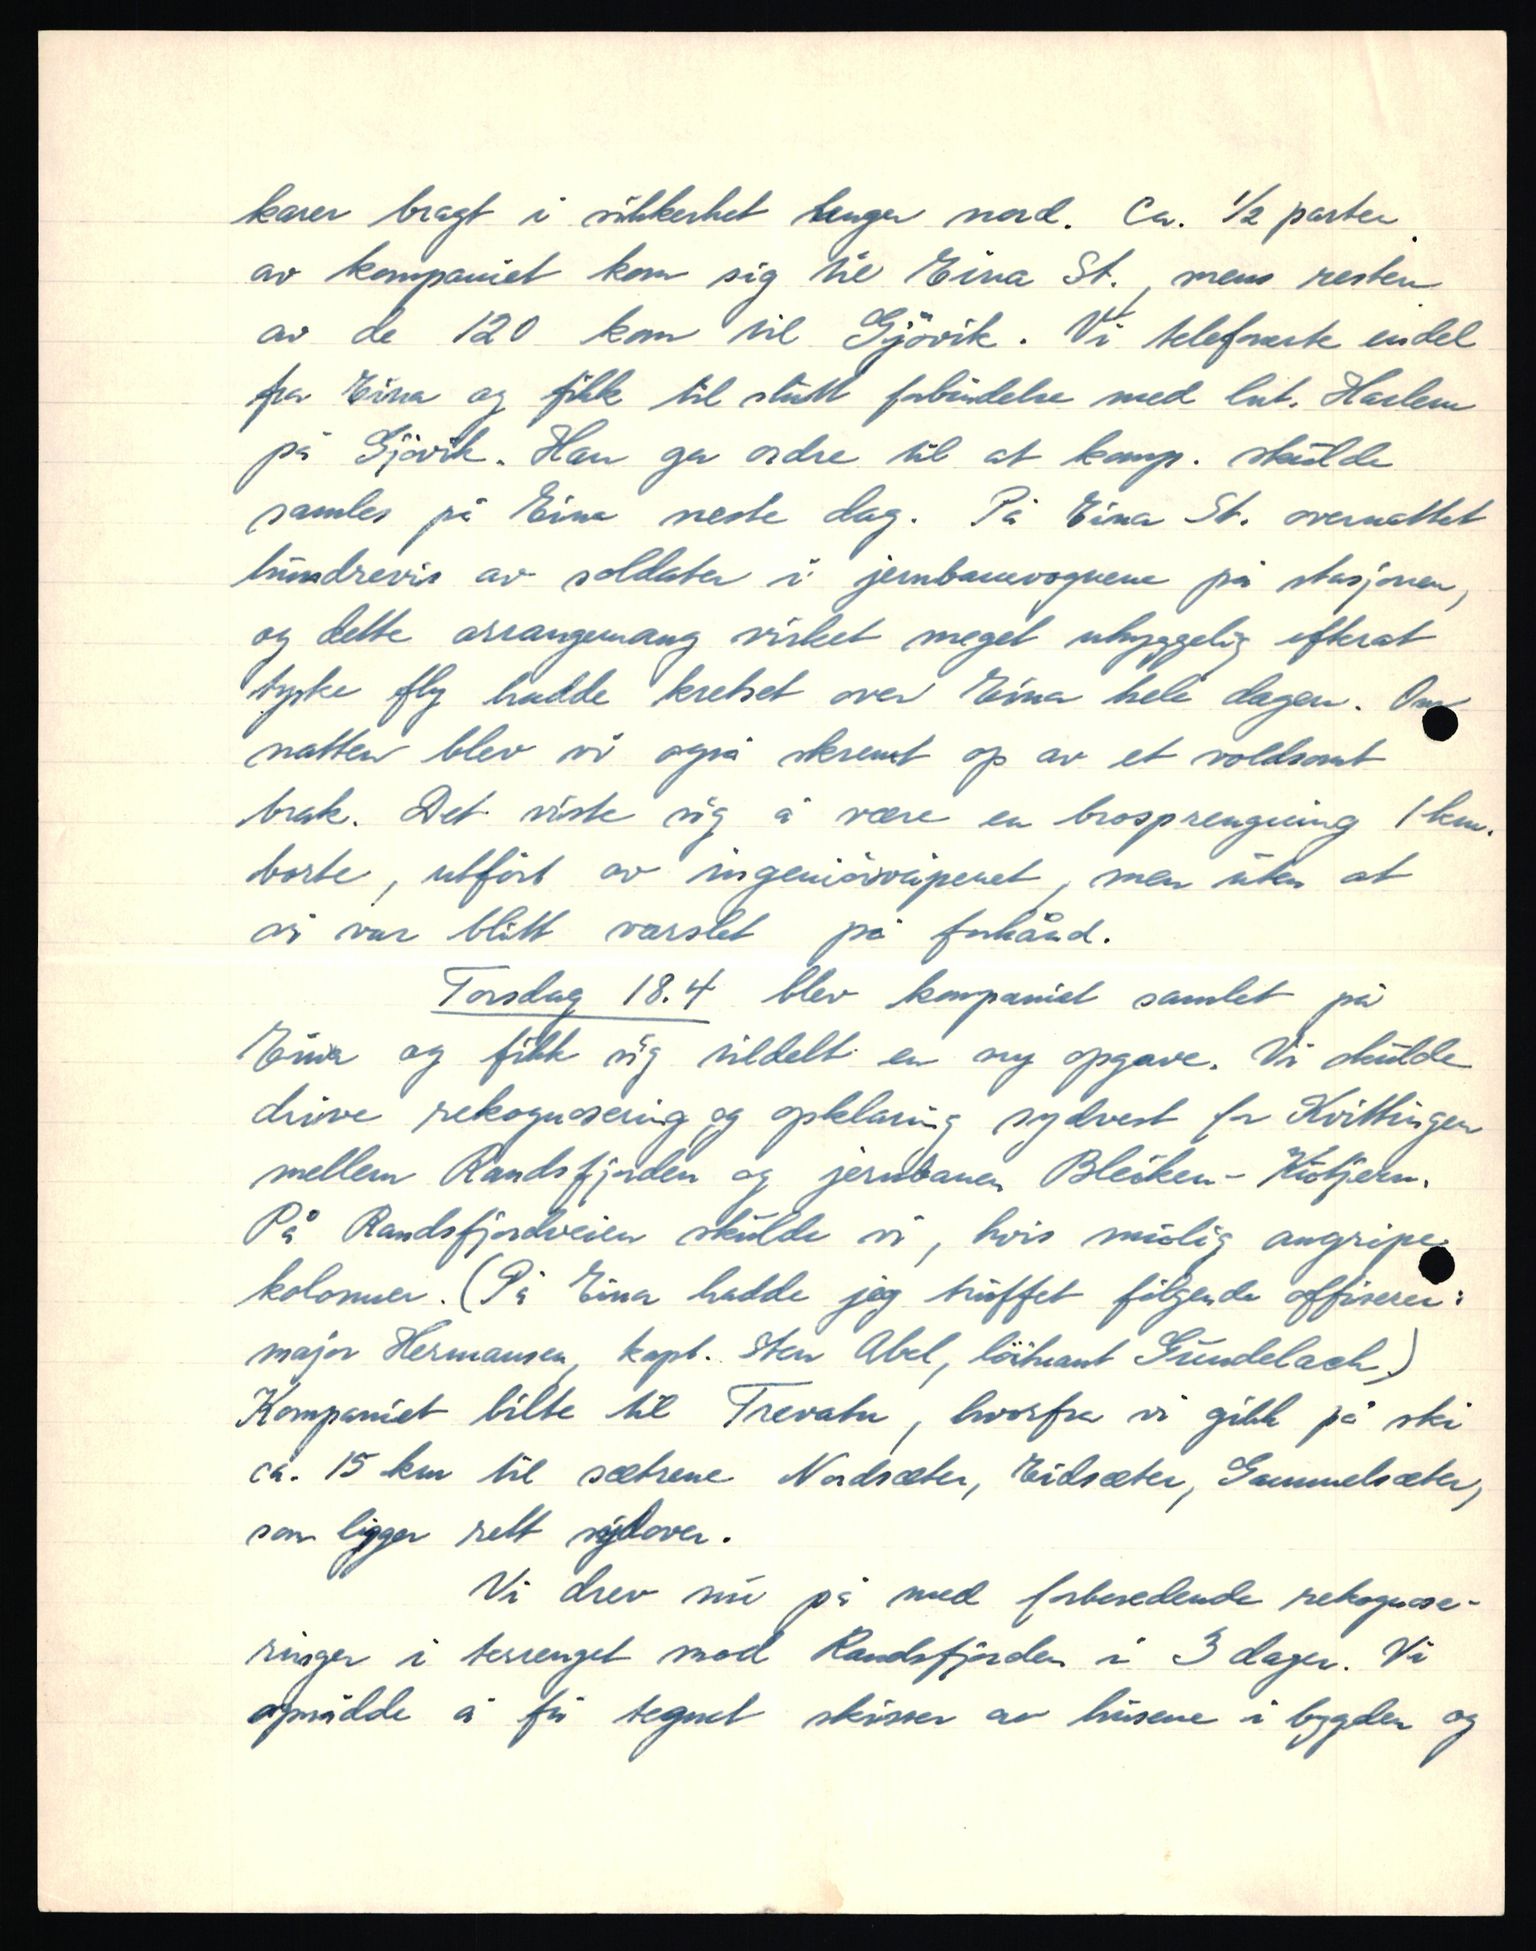 karer bragt i sikkerhet lenger nord. Ca. 1/2 parten
av kompaniet kom sig til Eina St., mens resten
av de 120 kom til Gjövik. Vi telefonerte endel
fra Eina og fikk til slutt forbindelse med lnt. Harlem
på Gjövik. Han ga ordre til at komp. skulde
samles på Eina neste dag. På Eina St. overnattet
hundrevis av soldater i jernbanevognene på stasjonen,
og dette arrangemang virket meget uhyggelig efterat
tyske fly hadde kretset over Eina hele dagen. Om
natten blev vi også skremt op av et voldsomt
brak. Det viste sig å være en brosprengning 1 km.
borte, utfört av ingeniörvåpenet, men uten at
vi var blitt varslet på forhånd.
Torsdag 18.4 blev kompaniet samlet på
Eina og fikk sig tildelt en ny opgave. Vi skulde
drive rekognosering og opklaring sydvest for Kvittingen
mellem Randsfjorden og jernbanen Bleiken-
På Randsfjordveien skulde vi, hvis mulig angripe
kolonner. (På Eina hadde jeg truffet fölgende offiserer:
major Hermansen, kapt. Sten Abel, löitnant Gundelach.)
Kompaniet bilte til Trevatn, hvorfra vi gikk på ski
ca. 15 km til sætrene Nordsæter, Eidsæter, Gammelsæter,
som ligger rett sydover.
Vi drev nu på med forberedende rekognose-
ringer i terrenget mod Randsfjorden i 3 dager. Vi
opnådde å få tegnet skisser av husene i bygden og